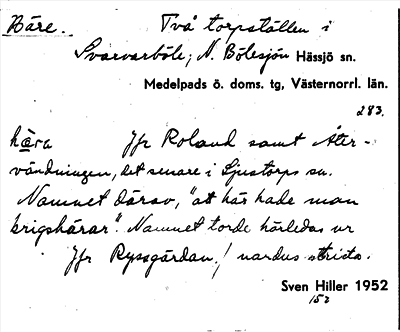 Häre. Två torpställen i
Svarvarböle, N. Bölesjön Hässjö sn.
Medelpads ö. doms. tg, Västernorrl. län.
283.
hära Jfr Roland samt Åter-
vändningen, det senare i Ljustorps sn.
Namnet därav, "att här hade man
krigshärar". Namnet torde härledas ur
Jfr Ryssgärdan! nardus stricta.
Sven Hiller 1952
152